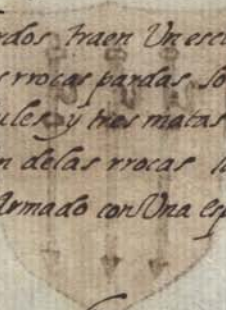 rdos traen Un escu
s rrocas pardas so
ules y tres matas
n delas rrocas la
Armado con Una esp